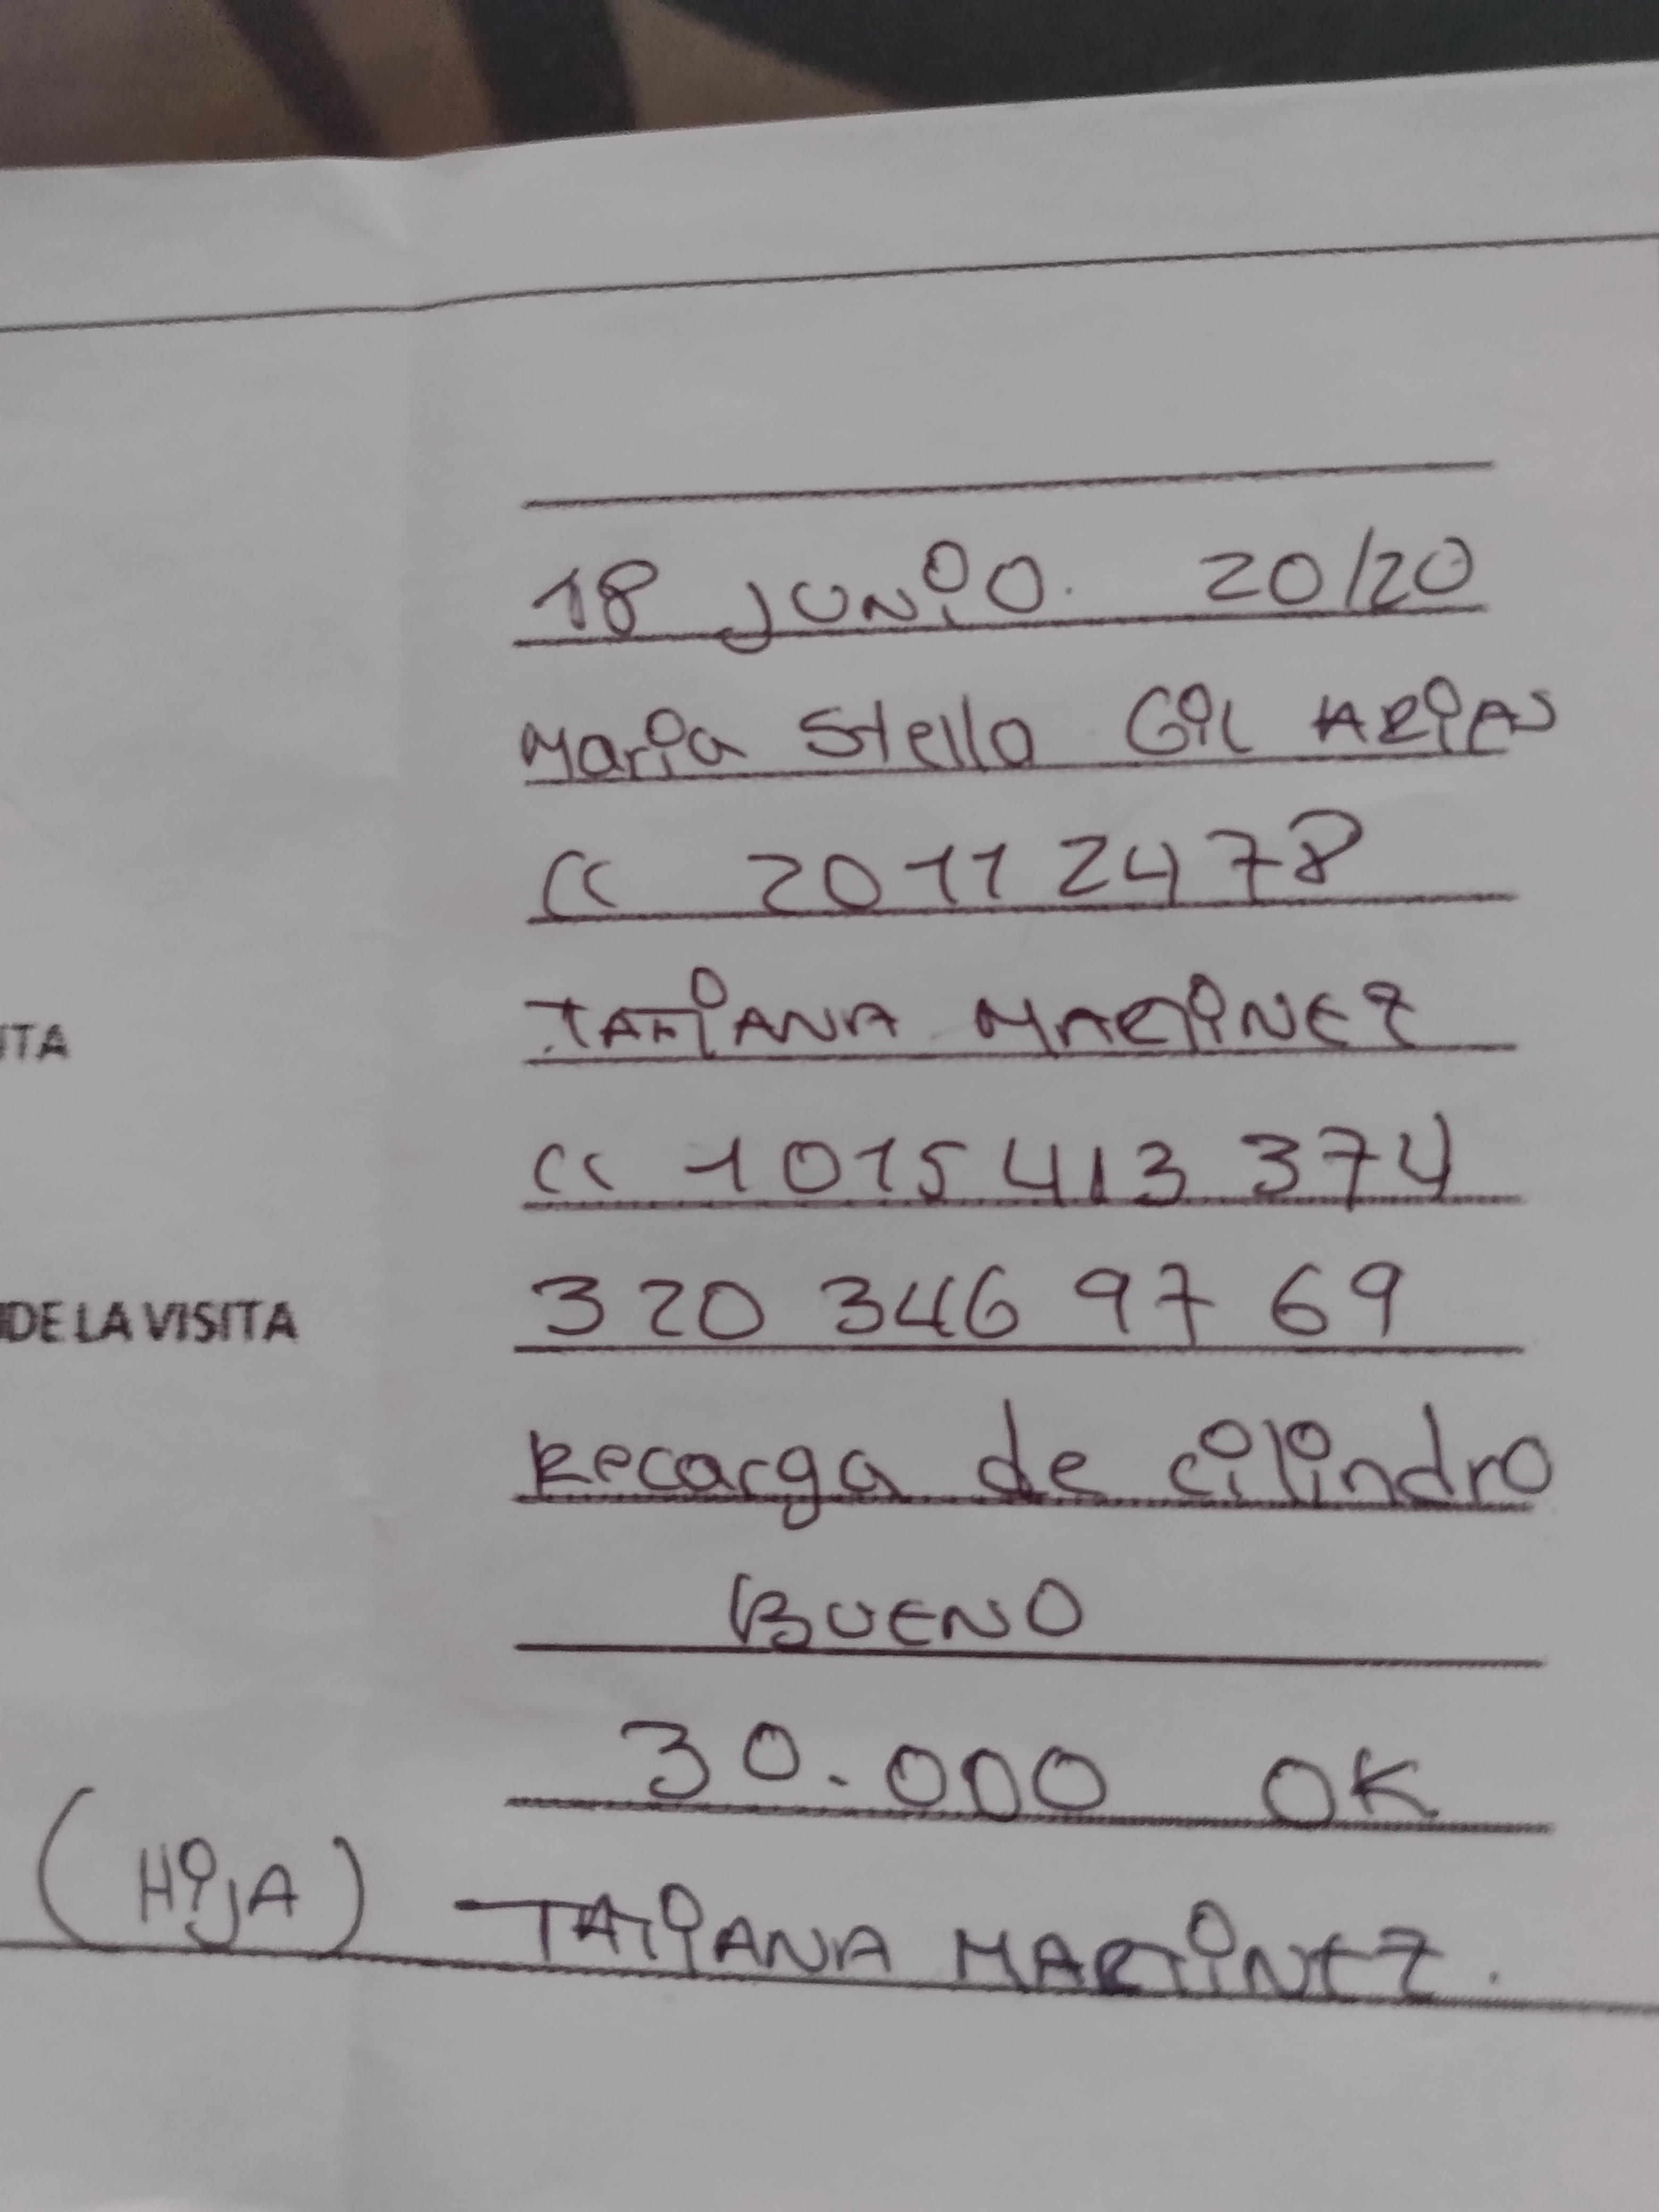 18 JUNIO. 20/20
Maria Stella Gil ARIAS
CC 20112478
ITA TATIANA MARTINEZ
CC 1015 413 374
DE LA VISITA 320 346 97 69
Recarga de cilindro
BUENO
30.000 OK
(HIJA) TATIANA MARTINEZ.